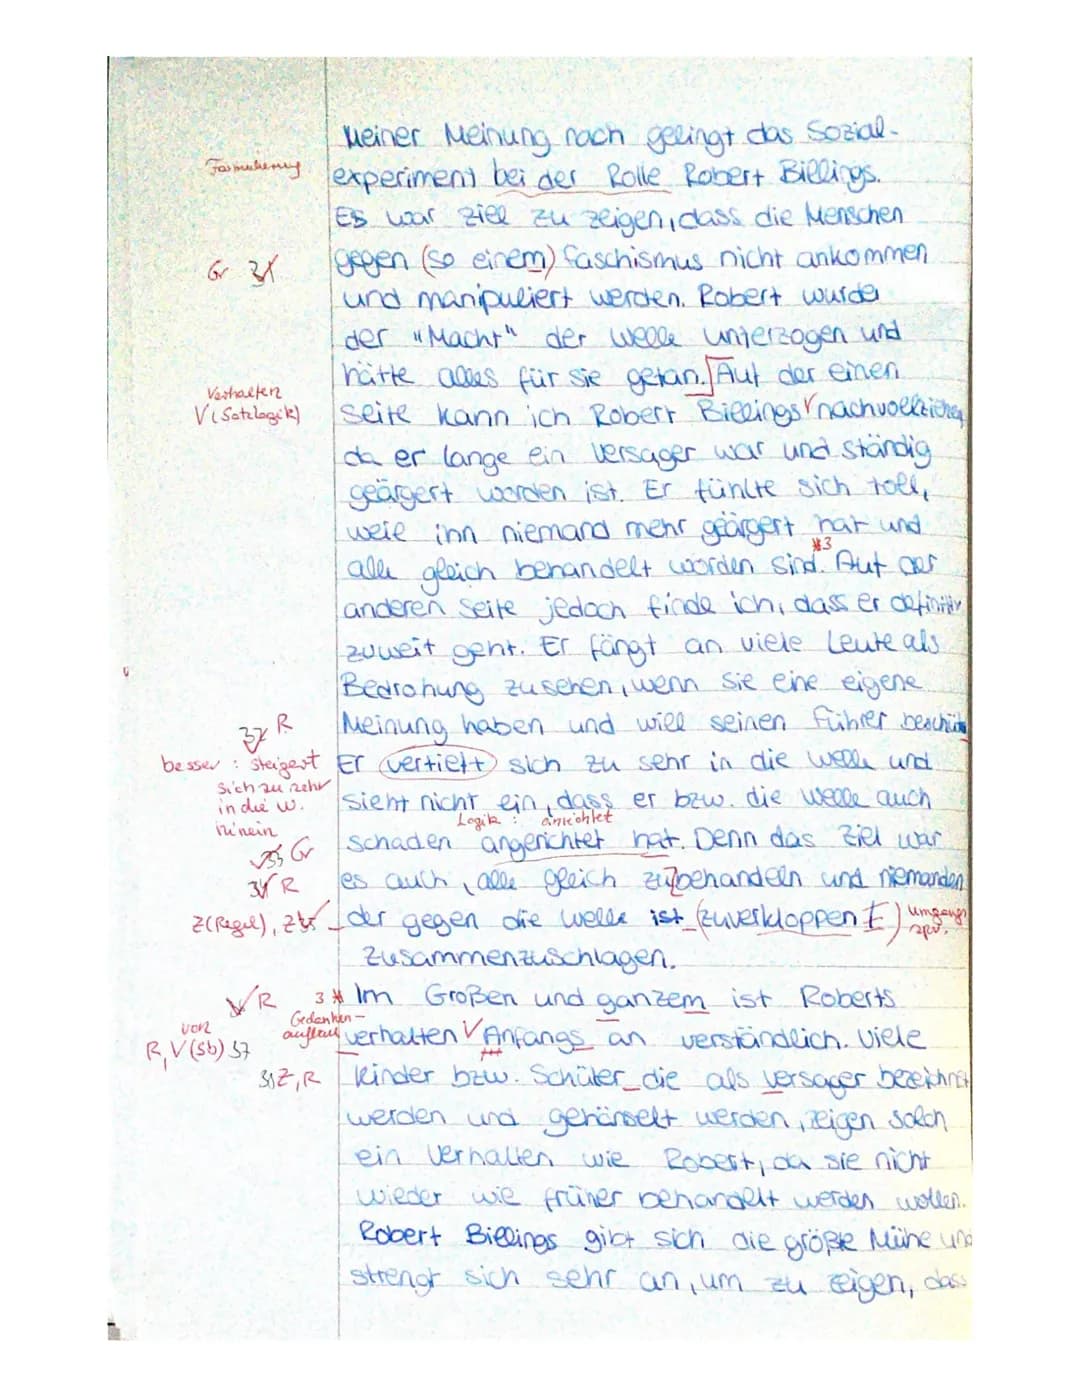 Meiner Meinung nach gelingt das Sozial-
Formulierung experiment bei der Rolle Robert Billings.
Es war ziel zu zeigen, dass die Menschen
Gr gegen (so einem) faschismus nicht ankommen
und manipuliert werden. Robert wurde
der "Macht" der Welle unterzogen und
hätte alles für sie getan. Auf der einen
Verhalten
V (Satzlogik) seite kann ich Robert Billings nachvollziehen,
da er lange ein versager war und ständig
geärgert worden ist. Er fühlte sich toll,
weil ihn niemand mehr geärgert hat und
*3
alle gleich behandelt worden sind. Auf der
anderen seite jedoch finde ich, dass er definitiv
zuweit geht. Er fängt an viele Leute als
Bedrohung zusehen, wenn sie eine eigene
R Meinung haben und will seinen führer
besser: steigert Er vertieft sich zu sehr in die welle und
sich zu sehr
in die W. sieht nicht ein, dass er bzw. die welle auch
hinein Logik: anrichtet
Gr schaden angerichtet hat. Denn das ziel war
R es auch, alle gleich zubehandeln und niemanden
Z (Regel), der gegen die welle ist (zuverkloppen)
zusammenzuschlagen.
R 3* Im Großen und ganzem ist Roberts
Gedanken-
von verhalten Anfangs an verständlich. Viele
R, V (Sb) 37
Z, R Kinder bzw. Schüler die als versager bezeichnet
werden und gehänselt werden, zeigen solch
ein verhalten wie Robert, da sie nicht
wieder wie früher behandelt werden wollen.
Robert Billings gibt sich die größte Mühe und
strengt sich sehr an, um zu zeigen, dass